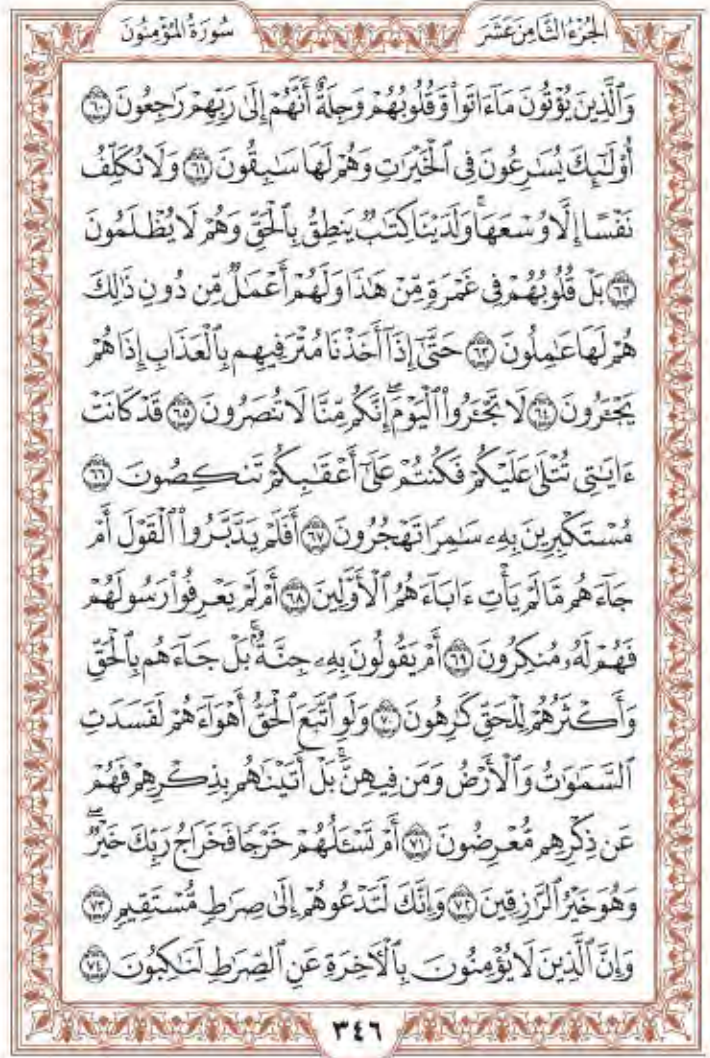 سُورَةُ المُؤْمِنُونَ
الجُزْءُ الثَّامِنَ عَشَرَ
وَٱلَّذِينَ يُؤْتُونَ مَآ ءَاتَواْ وَّقُلُوبُهُمْ وَجِلَةٌ أَنَّهُمْ إِلَىٰ رَبِّهِمْ رَٰجِعُونَ ٦٠
أُوْلَٰٓئِكَ يُسَٰرِعُونَ فِي ٱلْخَيْرَٰتِ وَهُمْ لَهَا سَٰبِقُونَ ٦١ وَلَا نُكَلِّفُ
نَفْسًا إِلَّا وُسْعَهَاۖ وَلَدَيْنَا كِتَٰبٌ يَنطِقُ بِٱلْحَقِّ وَهُمْ لَا يُظْلَمُونَ
٦٢ بَلْ قُلُوبُهُمْ فِي غَمْرَةٍ مِّنْ هَٰذَا وَلَهُمْ أَعْمَٰلٌ مِّن دُونِ ذَٰلِكَ
هُمْ لَهَا عَٰمِلُونَ ٦٣ حَتَّىٰٓ إِذَآ أَخَذْنَا مُتْرَفِيهِم بِٱلْعَذَابِ إِذَا هُمْ
يَجْـَٔرُونَ ٦٤ لَا تَجْـَٔرُواْ ٱلْيَوْمَۖ إِنَّكُم مِّنَّا لَا تُنصَرُونَ ٦٥ قَدْ كَانَتْ
ءَايَٰتِي تُتْلَىٰ عَلَيْكُمْ فَكُنتُمْ عَلَىٰٓ أَعْقَٰبِكُمْ تَنكِصُونَ ٦٦
مُسْتَكْبِرِينَ بِهِۦ سَٰمِرًا تَهْجُرُونَ ٦٧ أَفَلَمْ يَدَّبَّرُواْ ٱلْقَوْلَ أَمْ
جَآءَهُم مَّا لَمْ يَأْتِ ءَابَآءَهُمُ ٱلْأَوَّلِينَ ٦٨ أَمْ لَمْ يَعْرِفُواْ رَسُولَهُمْ
فَهُمْ لَهُۥ مُنكِرُونَ ٦٩ أَمْ يَقُولُونَ بِهِۦ جِنَّةٌۢۚ بَلْ جَآءَهُم بِٱلْحَقِّ
وَأَكْثَرُهُمْ لِلْحَقِّ كَٰرِهُونَ ٧٠ وَلَوِ ٱتَّبَعَ ٱلْحَقُّ أَهْوَآءَهُمْ لَفَسَدَتِ
ٱلسَّمَٰوَٰتُ وَٱلْأَرْضُ وَمَن فِيهِنَّۚ بَلْ أَتَيْنَٰهُم بِذِكْرِهِمْ فَهُمْ
عَن ذِكْرِهِم مُّعْرِضُونَ ٧١ أَمْ تَسْـَٔلُهُمْ خَرْجًا فَخَرَاجُ رَبِّكَ خَيْرٌۖ
وَهُوَ خَيْرُ ٱلرَّٰزِقِينَ ٧٢ وَإِنَّكَ لَتَدْعُوهُمْ إِلَىٰ صِرَٰطٍ مُّسْتَقِيمٍ ٧٣
وَإِنَّ ٱلَّذِينَ لَا يُؤْمِنُونَ بِٱلْأَخِرَةِ عَنِ ٱلصِّرَٰطِ لَنَٰكِبُونَ ٧٤
٣٤٦